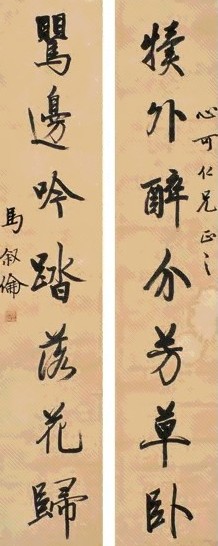 心可仁兄正之
犢外醉分芳草卧
鸎邊吟踏落花歸
馬叙倫